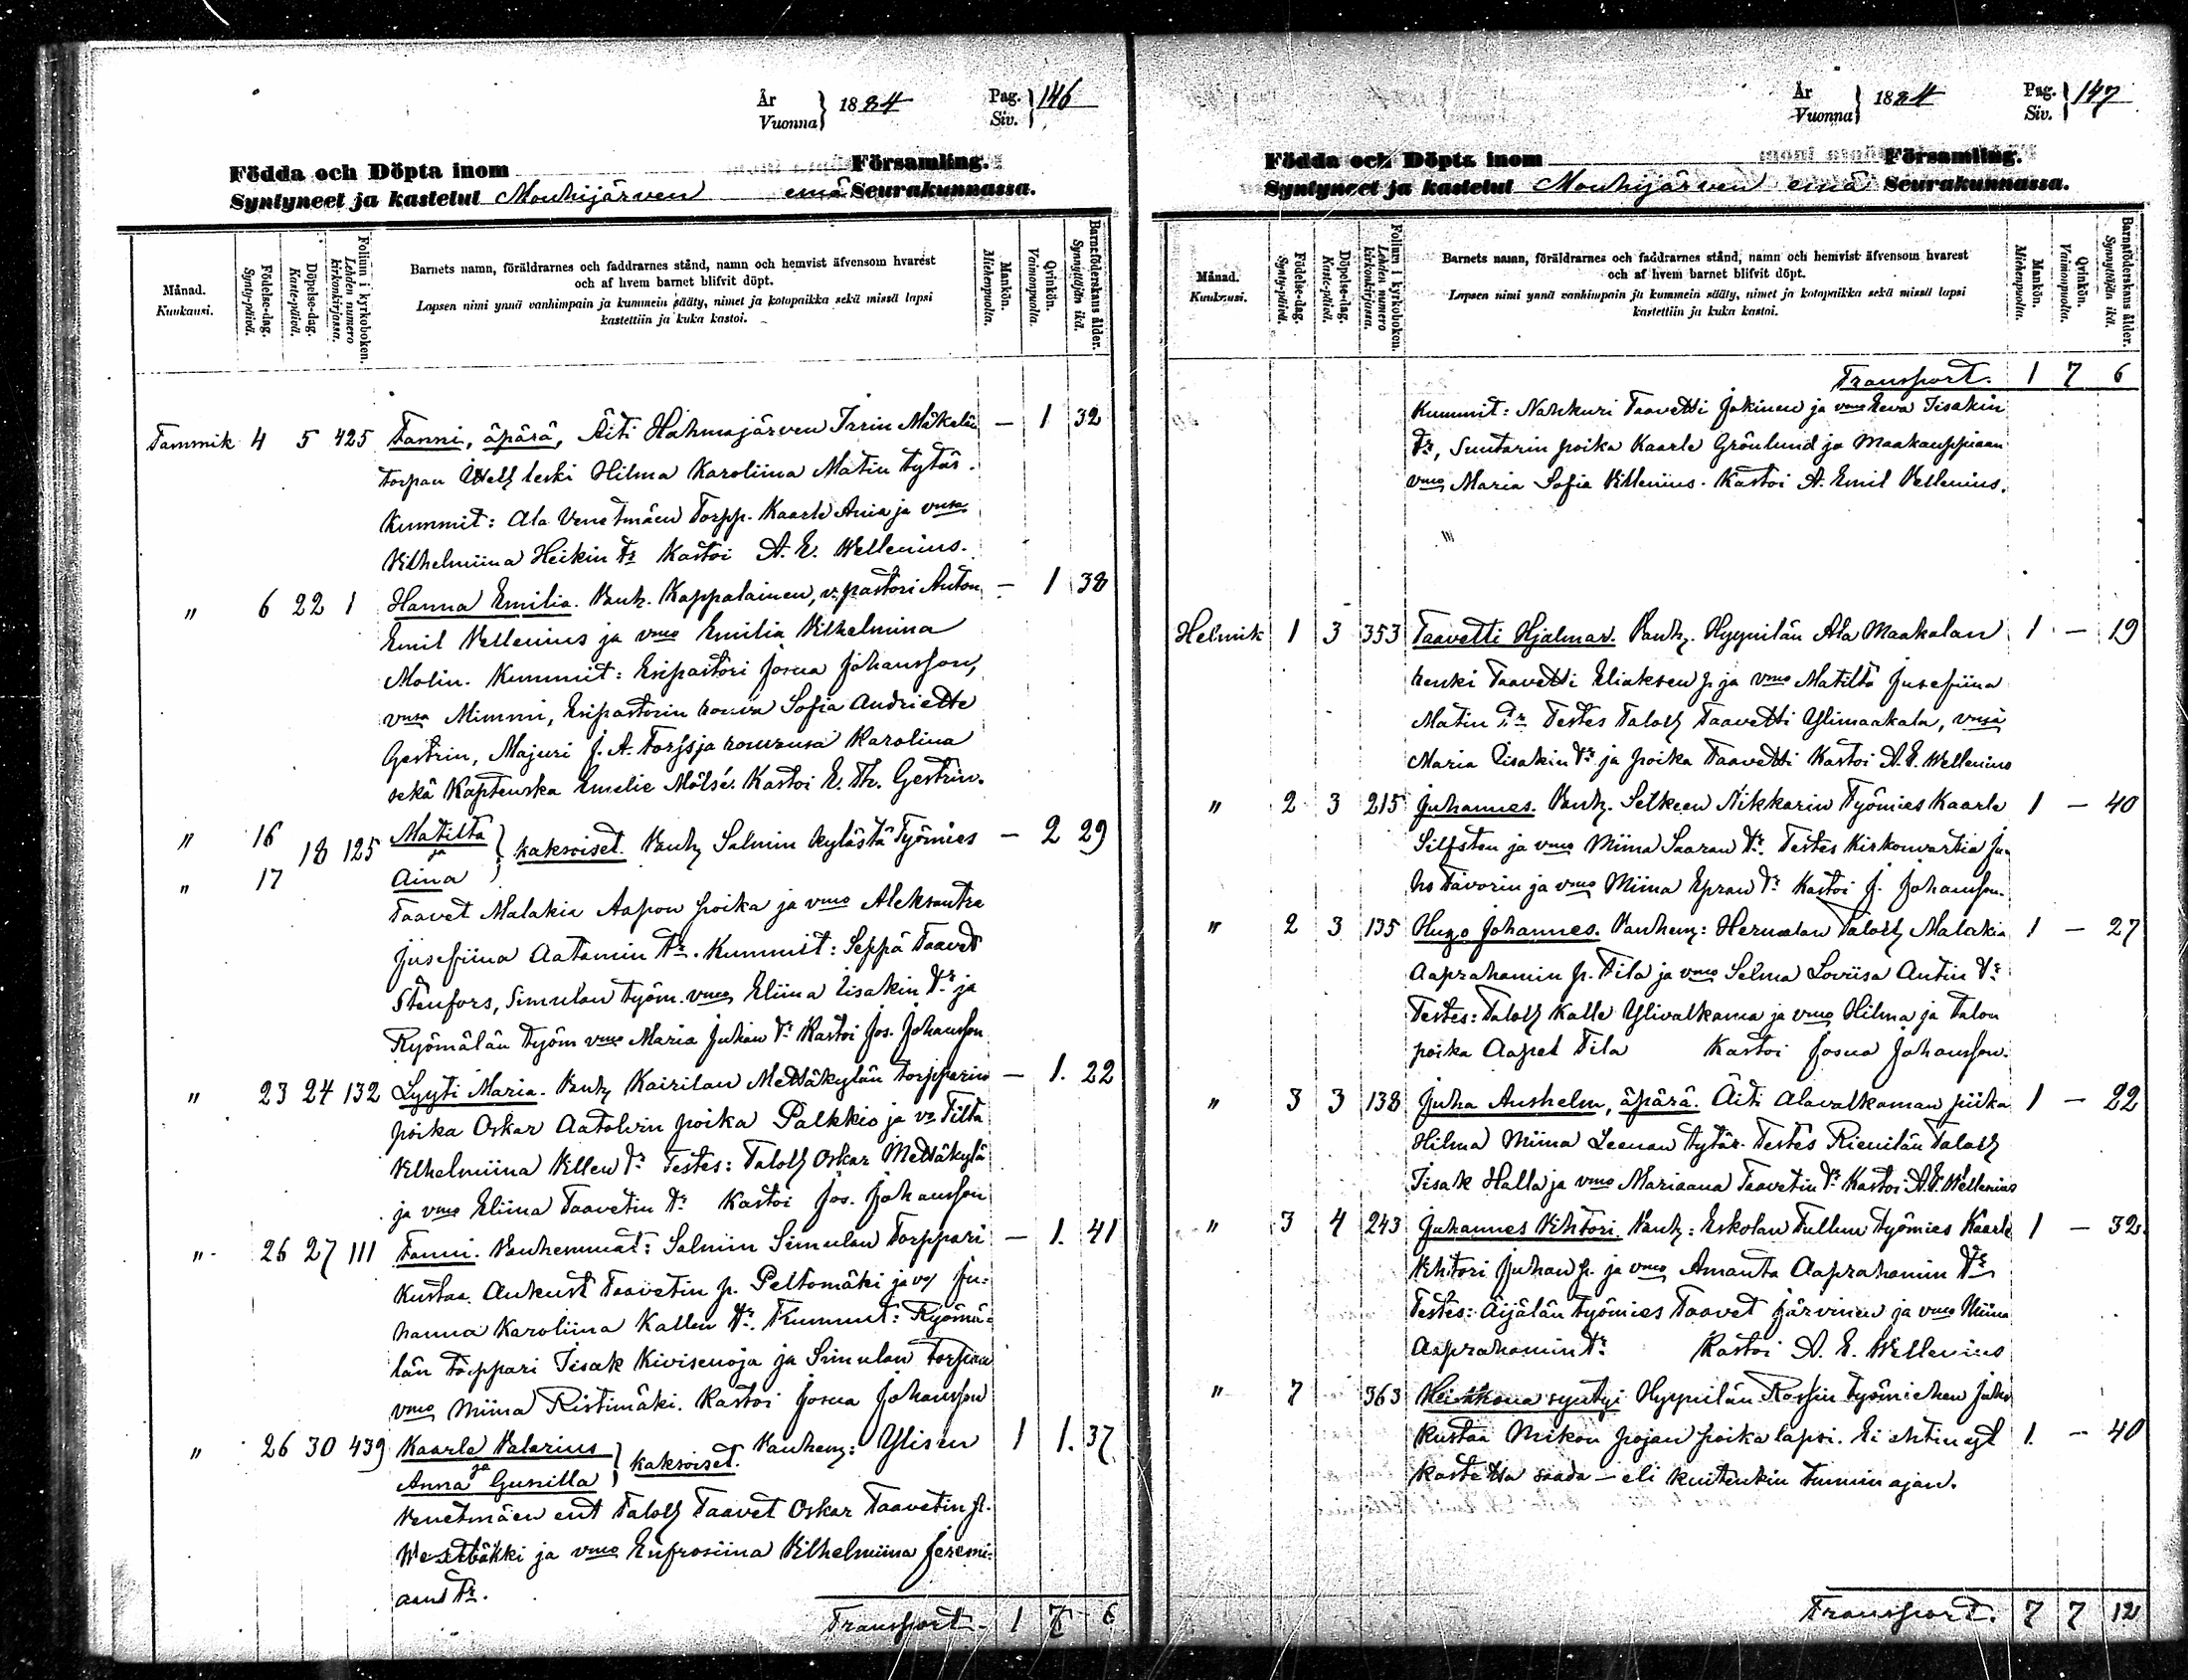 År
Vuonna } 1884
Pag.
Siv. } 146
Födda och Döpta inom Församling.
Syntyneet ja kastetut Mouhijärven emä Seurakunnassa.
Månad.
Kuukausi.
Födelse-dag.
Synty-päivä.
Döpelse-dag.
Kaste-päivä.
Folium i kyrkoboken.
Lehden numero kirkonkirjassa.
Barnets namn, föräldrarnes och faddrarnes stånd, namn och hemvist äfvensom hvarest
och af hvem barnet blifvit döpt.
Lapsen nimi ynnä vanhimpain ja kummein sääty, nimet ja kotopaikka sekä missä lapsi
kastettiin ja kuka kastoi.
Mankön.
Miehenpuolta.
Qvinkön.
Vaimonpuolta.
Barnaföderskans ålder.
Synnyttäjän ikä.
Tammik 4 5 425 Fanni, äpärä, Äiti Hahmajärven Iarin Mäkelän — 1 32
torpan leski Hilma Karoliina Matin tytär.
Kummit: Ala Venetmäen Torpp. Kaarle ja vmsa
Vilhelmiina Heikin tr Kastoi A. E. Wellenius.
" 6 22 1 Hanna Emilia. Vanh. Kappalainen, v. pastori Anton — 1 38
Emil Vellenius ja vmo Emilia Vilhelmina
Molin. Kummit: Esipastori Josua Johansson,
vmsa Mimmi, Esipastorin rouva Sofia Andriette
Gestrin, Majuri J. A. Forss ja rouvansa Karolina
sekä Kaptenska Emelie Mölsé. Kastoi E. Th. Gestrin.
" 16 18 125 Matilta
ja } kaksoiset. Vanh. Salmin kylästä Työmies — 2 29
" 17 Aina
Taavet Malakia Aapon poika ja vmo Aleksantra
Jusefiina Aatamin tr. Kummit: Seppä Taavet
Stenfors, Simulan työm. vmo Eliina Iisakin tr ja
Ryömälän työm vmo Maria Juhan tr Kastoi Jos. Johansson
" 23 24 132 Lyyti Maria. Vanh. Kairilan Mettäkylän torpparin — 1. 22
poika Oskar Aatolvin poika Palkkio ja vo Tilta
Vilhelmiina Villen tr Testes: Taloll Oskar Mettäkylä
ja vmo Eliina Taavetin tr Kastoi Jos. Johansson
" 26 27 111 Fanni. Vanhemmat: Salmin Simulan Torppari — 1. 41
Kustaa Aukust Taavetin p. Peltomäki ja vo Ju-
hanna Karoliina Kallen tr. Kummit: Ryömä-
län torppari Iisak Kivisenoja ja Simulan torpan
vmo Miina Ristimäki. Kastoi Josua Johansson
" 26 30 439 Kaarle Valarius
ja } kaksoiset. Vanhem: Ylisen 1 1. 37
Anna Gunilla
Venetmäen ent Taloll Taavet Oskar Taavetin p.
Westbäkki ja vmo Eufrosiina Vilhelmiina Jeremi-
aan tr.
Transport. 1 7 6
År
Vuonna } 1884
Pag.
Siv. } 147
Födda och Döpta inom Församling.
Syntyneet ja kastetut Mouhijärven emä Seurakunnassa.
Månad.
Kuukausi.
Födelse-dag.
Synty-päivä.
Döpelse-dag.
Kaste-päivä.
Folium i kyrkoboken.
Lehden numero kirkonkirjassa.
Barnets namn, föräldrarnes och faddrarnes stånd, namn och hemvist äfvensom hvarest
och af hvem barnet blifvit döpt.
Lapsen nimi ynnä vanhimpain ja kummein sääty, nimet ja kotopaikka sekä missä lapsi
kastettiin ja kuka kastoi.
Mankön.
Miehenpuolta.
Qvinkön.
Vaimonpuolta.
Barnaföderskans ålder.
Synnyttäjän ikä.
Transport. 1 7 6
Kummit: Nahkuri Taavetti Jokinen ja vmo Eeva Iisakin
tr, Suutarin poika Kaarle Grönlund ja Maakauppiaan
vmo Maria Sofia Villenius. Kastoi A. Emil Vellenius.
Helmik 1 3 353 Taavetti Hjalmar. Vanh. Hyynilän Ala Maakalan 1 — 19
renki Taavetti Eliaksen p. ja vmo Matilta Jusefiina
Matin tr Testes Taloll Taavetti Ylimaakala, vmsa
Maria Iisakin tr ja poika Taavetti Kastoi A. E. Wellenius
" 2 3 215 Juhannes. Vanh. Selkeen Nikkarin Työmies Kaarle 1 — 40
Silfsten ja vmo Miina Saaran tr. Testes Kirkonvartia Ju-
ho Tavorin ja vmo Miina Epran tr Kastoi J. Johansson.
" 2 3 135 Hugo Johannes. Vanhem: Hermalan Taloll Malakia 1 — 27
Aaprahamin p. Tila ja vmo Selma Loviisa Antin tr
Testes: Taloll Kalle Ylivalkama ja vmo Hilma ja talon
poika Aapet Tila Kastoi Josua Johansson.
" 3 3 138 Juha Anshelm, äpärä. Äiti Alavalkaman piika 1 — 22
Hilma Miina Leenan tytär. Testes Rienilän Taloll
Iisak Halla ja vmo Mariaana Taavetin tr Kastoi A. E. Wellenius
" 3 4 243 Juhannes Vihtori. Vanh: Eskolan Tullun Työmies Kaarle 1 — 32.
Vihtori Juhan p. ja vmo Amanta Aaprahamin tr
Testes: Äijälän työmies Taavet Järvinen ja vmo Miina
Aaprahamin tr Kastoi A. E. Wellenius
" 7 363 Heikkona syntyi Hyynilän Rossin työmiehen Juho
Kustaa Mikon pojan poikalapsi. Ei ehtinyt 1. — 40
kastetta saada — eli kuitenkin tunnin ajan.
Transport. 7 7 12